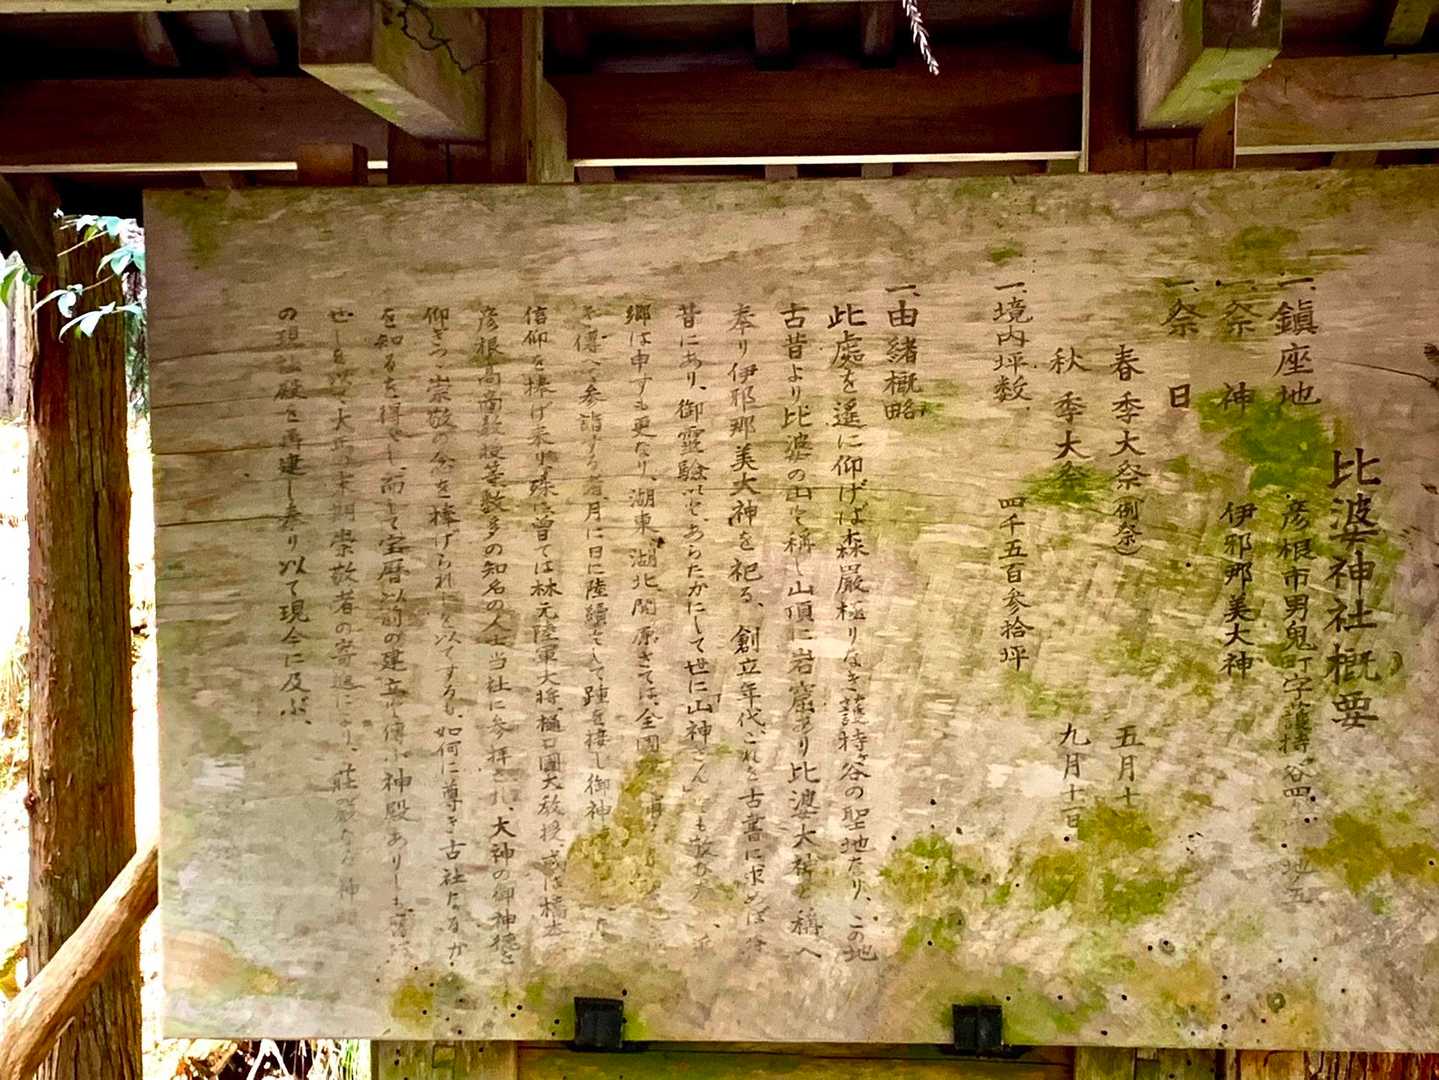 比婆神社概要
一、鎮座地 彦根市男鬼町字護持ヶ谷四 地五
一、祭神 伊邪那美大神
一、祭日
春季大祭(例祭) 五月十
秋季大祭 九月十二日
一、境内坪数 四千五百参拾坪
一、由緒概略
此處を遥に仰げば森嚴極りなき護持ヶ谷の聖地なり、この地
古昔より比婆の山と称し山頂に岩窟あり比婆大社と稱へ
奉り伊邪那美大神を祀る、創立年代、これを古書に求めば
昔にあり、御靈驗いとあらたかにして世に「山神さん」とも敬
郷は申すも更なり、湖東、湖北、関原さては、全国
を傳へて参詣する者、月に日に陸續として踵を接し御神
信仰を捧げ来り殊に曽ては林元陸軍大将、樋口國大教授或は橋本
彦根高商教授等、数多の知名の人士当社に参拝され、大神の御神徳を
仰ぎつゝ崇敬の念を捧げられしを以てするも、如何に尊き古社なるか
を知るを得べし、而して宝暦以前の建立と傳ふ神殿ありしも
せしを以て大正の末期崇敬者の寄進により、荘嚴なる神
の現社殿を再建し奉り以て現今に及ぶ、